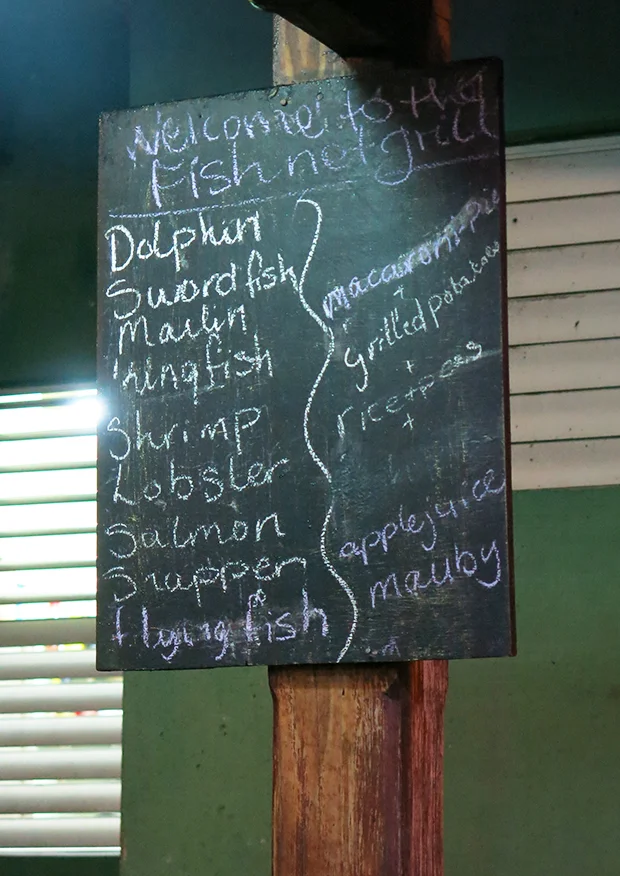 Welcome to the
Fish not grill
Dolphin
Swordfish
Marlin
Kingfish
Shrimp
Lobster
Salmon
Snapper
Flying fish
macaroni pie
+
grilled potatoes
+
rice + peas
+
apple juice
mauby